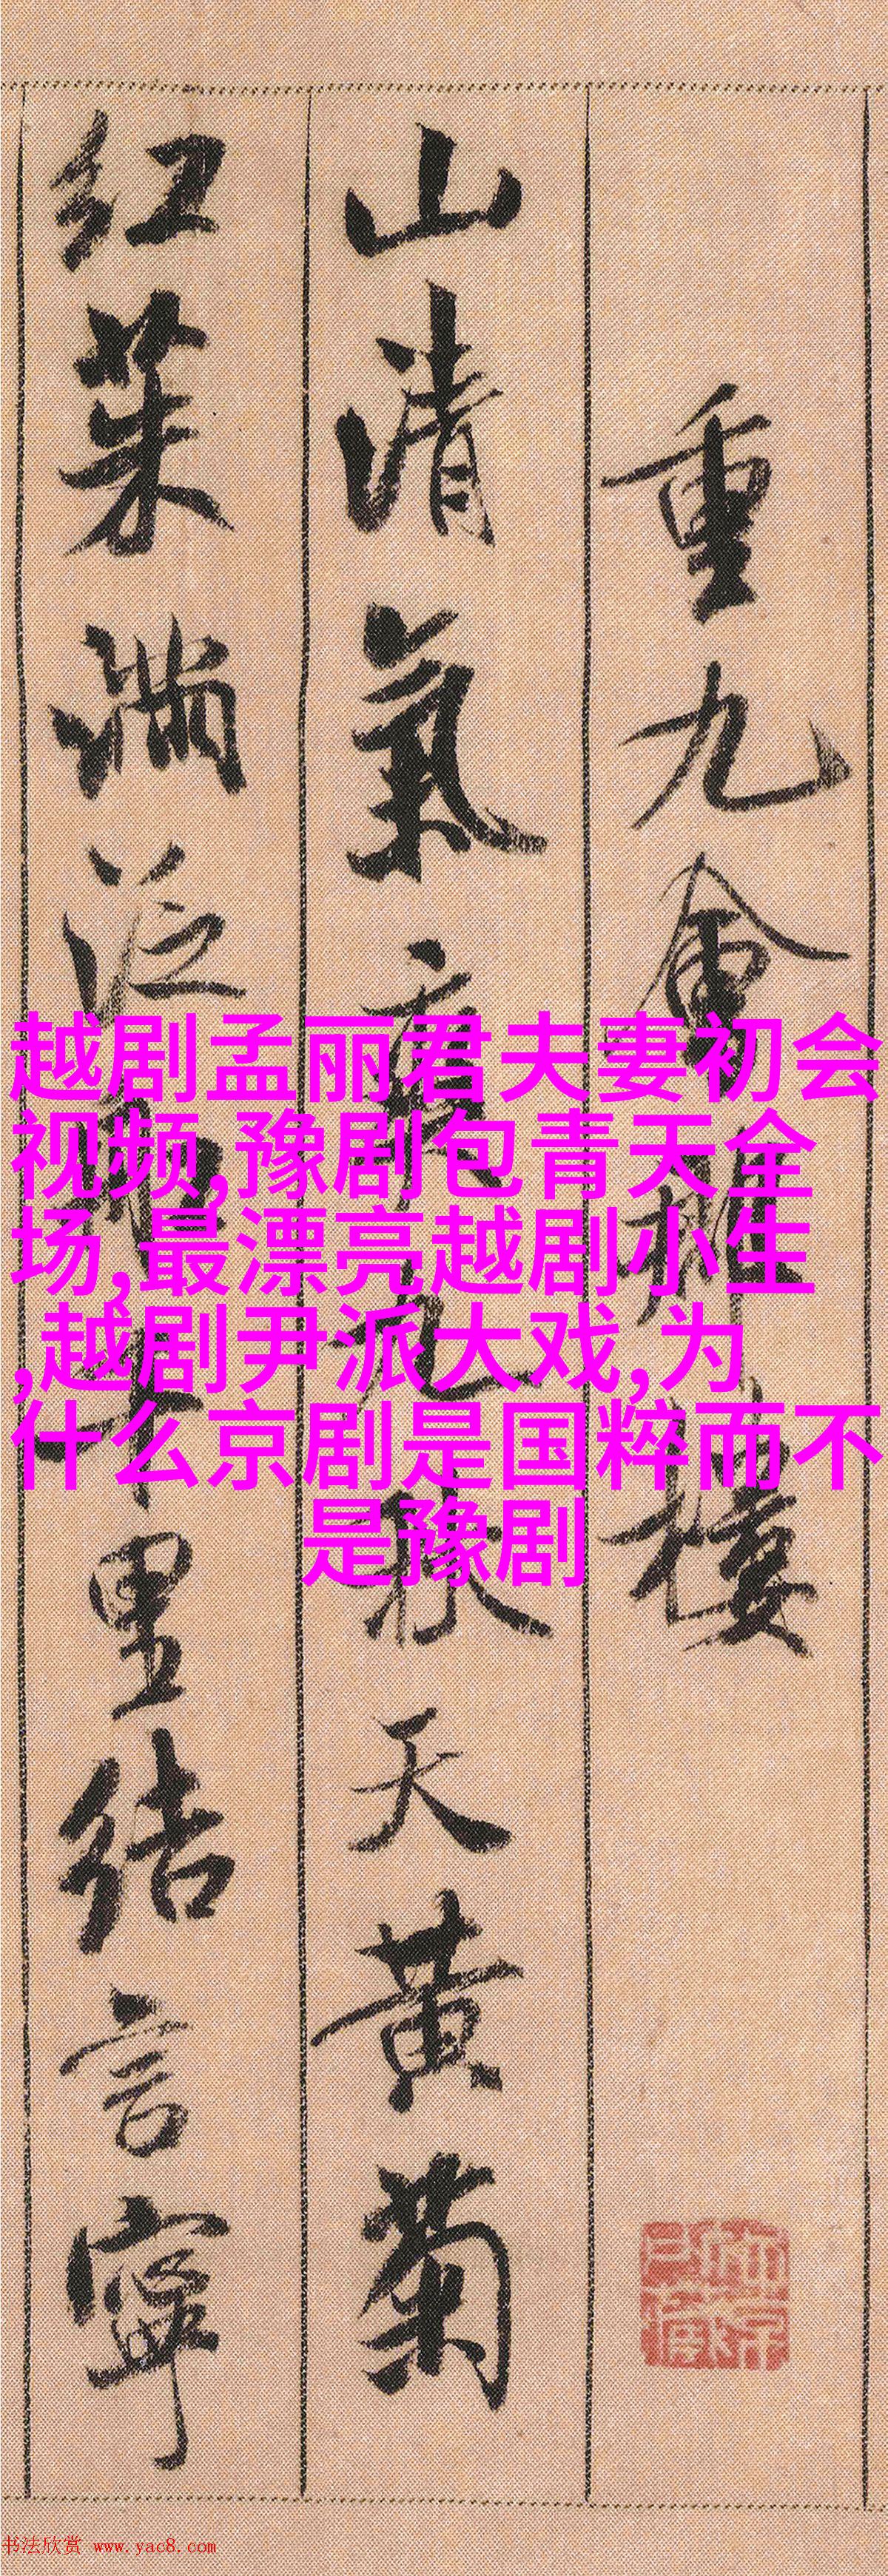 重九會樓
山清氣九秋天黄菊
红茱满泛千里结言寧
越剧孟丽君夫妻初会
视频,豫剧包青天全
场,最漂亮越剧小生
,越剧尹派大戏,为
什么京剧是国粹而不
是豫剧
书法欣赏 www.yac8.com